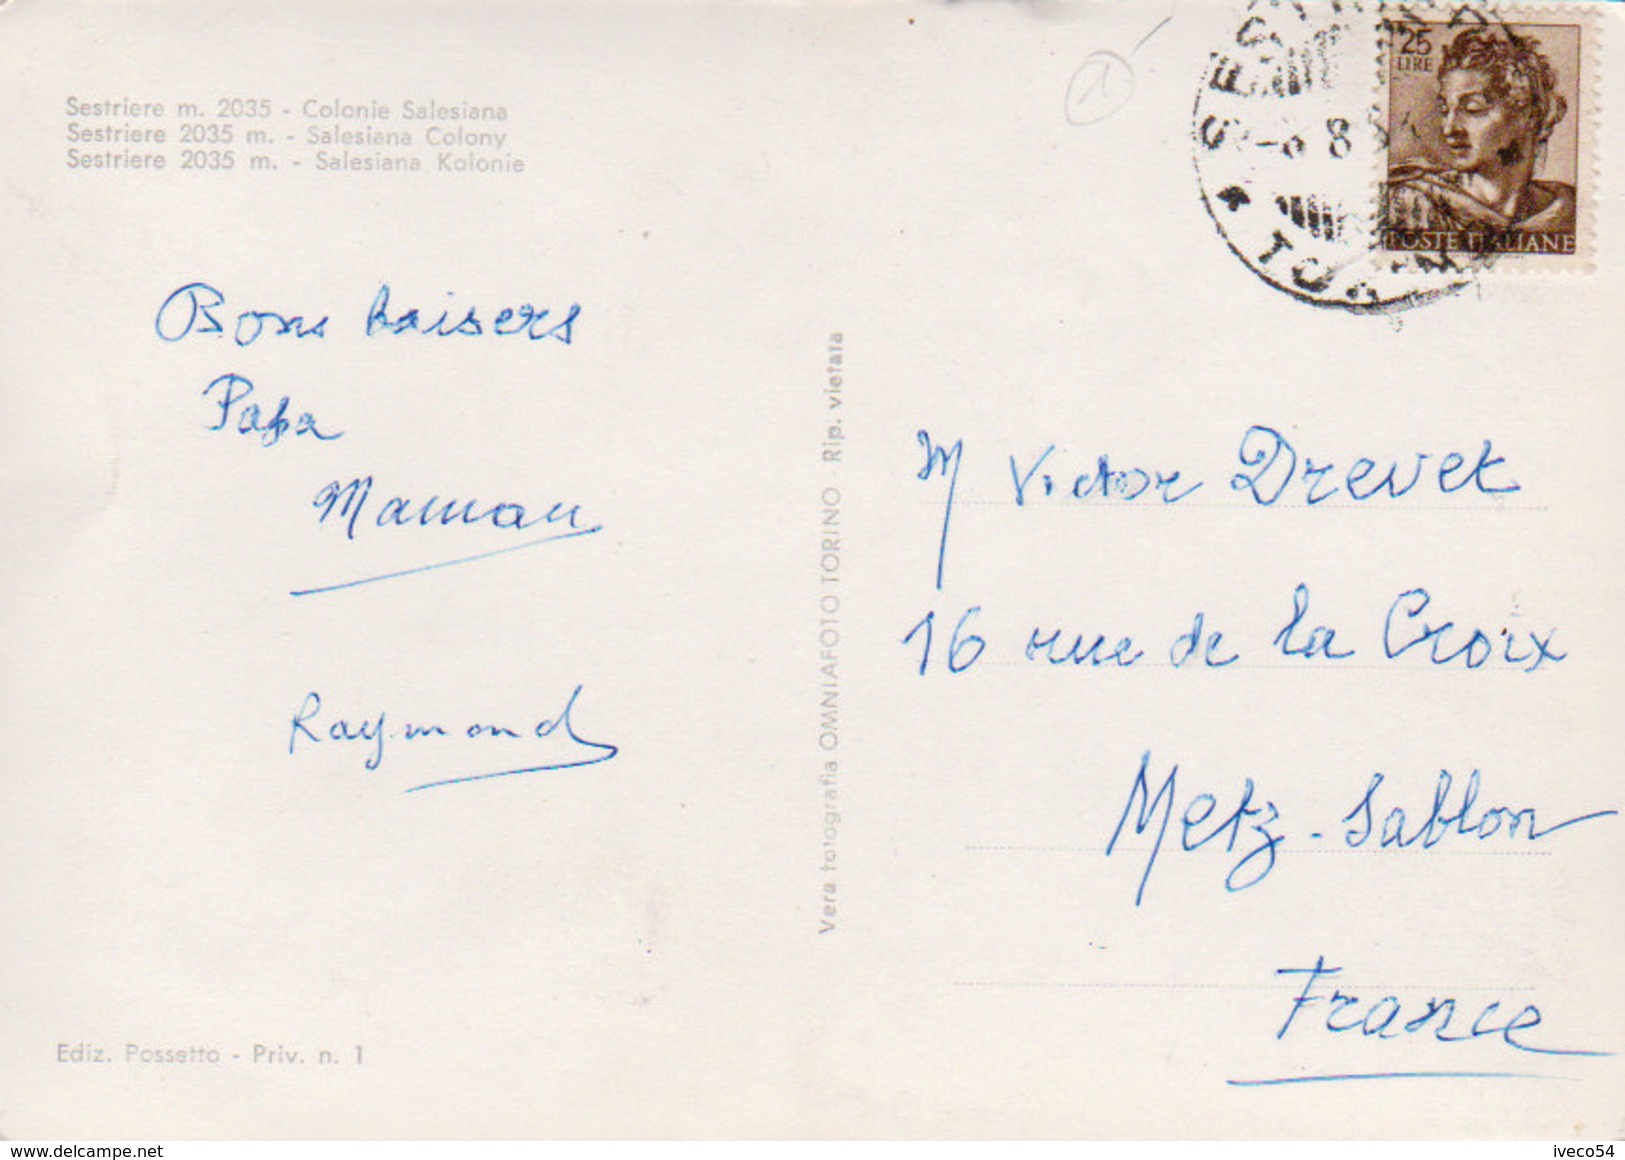 Sestriere m. 2035 - Colonie Salesiana
Sestriere 2035 m. - Salesiana Colony
Sestriere 2035 m. - Salesiana Kolonie
1
25
LIRE
POSTE ITALIANE
Bons baisers
Papa
Maman
Raymond
Vera fotografia OMNIAFOTO TORINO Rip. vietata
M Victor Drevet
16 rue de la Croix
Metz-Sablon
France
Ediz. Possetto - Priv. n. 1
www.delcampe.net
iveco54